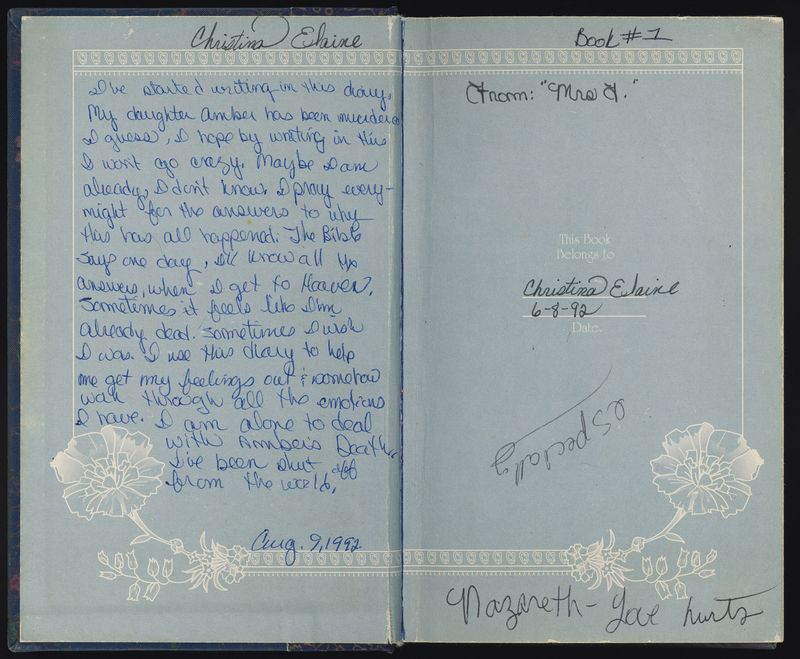 Christina Elaine
I've started writing in this diary.
My daughter Amber has been murdered
I guess, I hope by writing in this
I won't go crazy. Maybe I am
already, I don't know. I pray every-
night for the answers to why
this has all happened. The Bible
says one day, I'll know all the
answers, when I get to Heaven.
Sometimes it feels like I'm
already dead. Sometimes I wish
I was. I use this diary to help
me get my feelings out & somehow
walk through all the emotions
I have. I am alone to deal
with Amber's Death.
I've been shut off
from the world.
Aug. 9, 1992
Book #1
From: "Mrs J."
This Book
Belongs to
Christina Elaine
6-8-92
Date.
especially
Nazareth - Love hurts